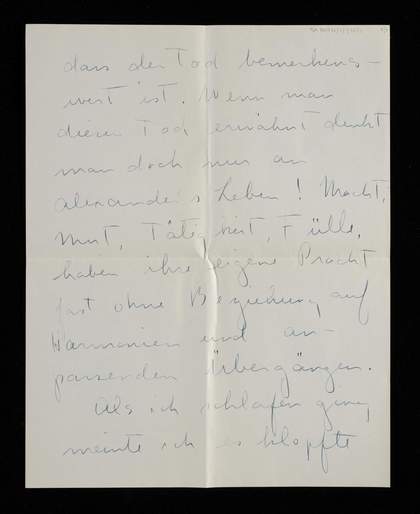 dass der Tod bemerkens-
wert ist. Wenn man
diesen Tod erwähnt denkt
man doch nur an
Alexander's Leben! Macht,
Mut, Tätigkeit, Fülle,
haben ihre eigene Pracht
fast ohne Beziehung auf
Harmonien und an-
passenden Übergängen.
Als ich schlafen ging,
meinte ich es klopfte